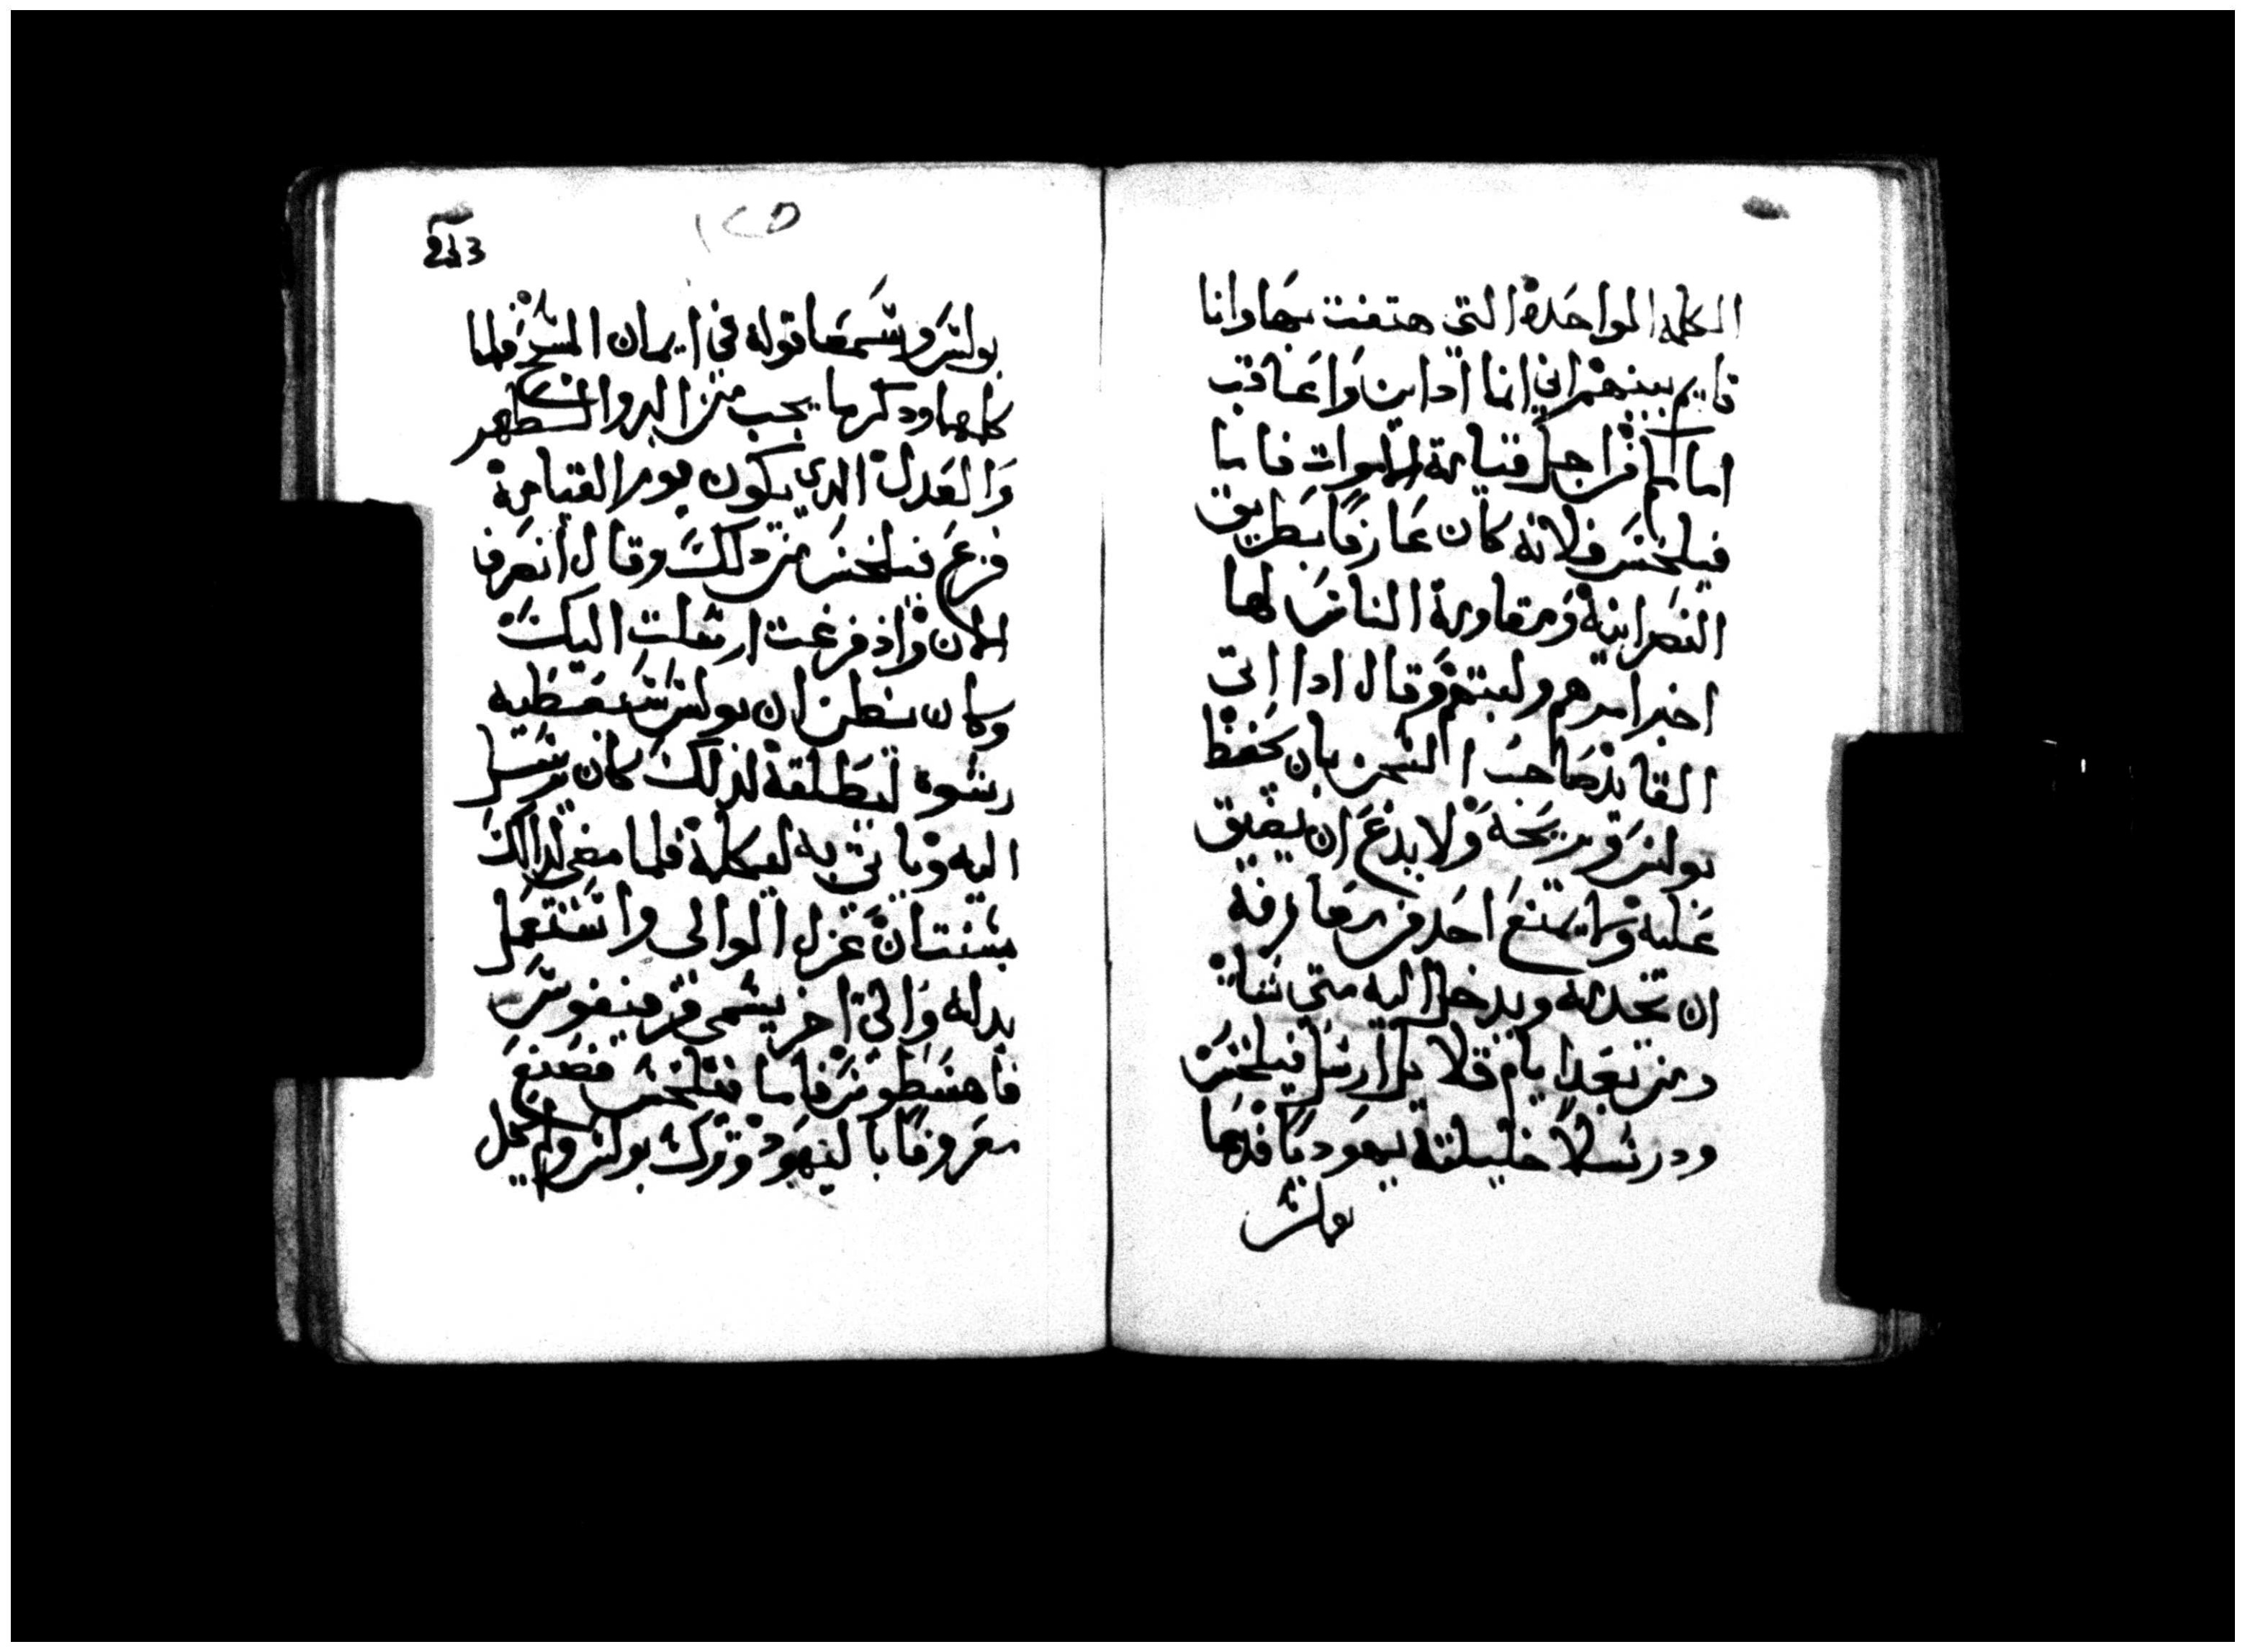 الكلمه الواحده التي هتفت بها وانا
قايم بينهم اني انما ادا ين واعاقب
امامكم من اجل قيامة الاموات فاما
فيلخس فلانه كان عارفا بطريق
النصرانية ومقاومة الناس لها
اخر امرهم ولبثهم وقال اذا اتى
القايد صاحب السجن بان يحفظ
بولس ويريحه ولا يدع ان يضيق
عليه ولا يمنع احد من معارفه
ان تخدمه ويدخل اليه متى شاه
ومن بعد ايام قلايل ارسل فيلخس
ودرسلا خليلته يهودية فدعا
بولس
١٢٥
بولس وسمعا قوله في ايمان المسيح فلما
كلمهما وذكر ما يجب من البر والتطهر
والعدل الدي يكون يوم القيامة
فزع فيلخس من ذلك وقال أنصرف
الان واذ فرغت ارسلت اليك
وكان يظن ان بولس سيعطيه
رشوه ليطلقه لذلك كان يرسل
اليه وياتي به ليكلمه فلما مضى لذالك
سنتان عزل الوالي واستعمل
بدله والي اخر يسمى فرمينفوس
فاهسطوس فاما فيلخس فصنع
معروفا باليهود وترك بولس ولم يحل